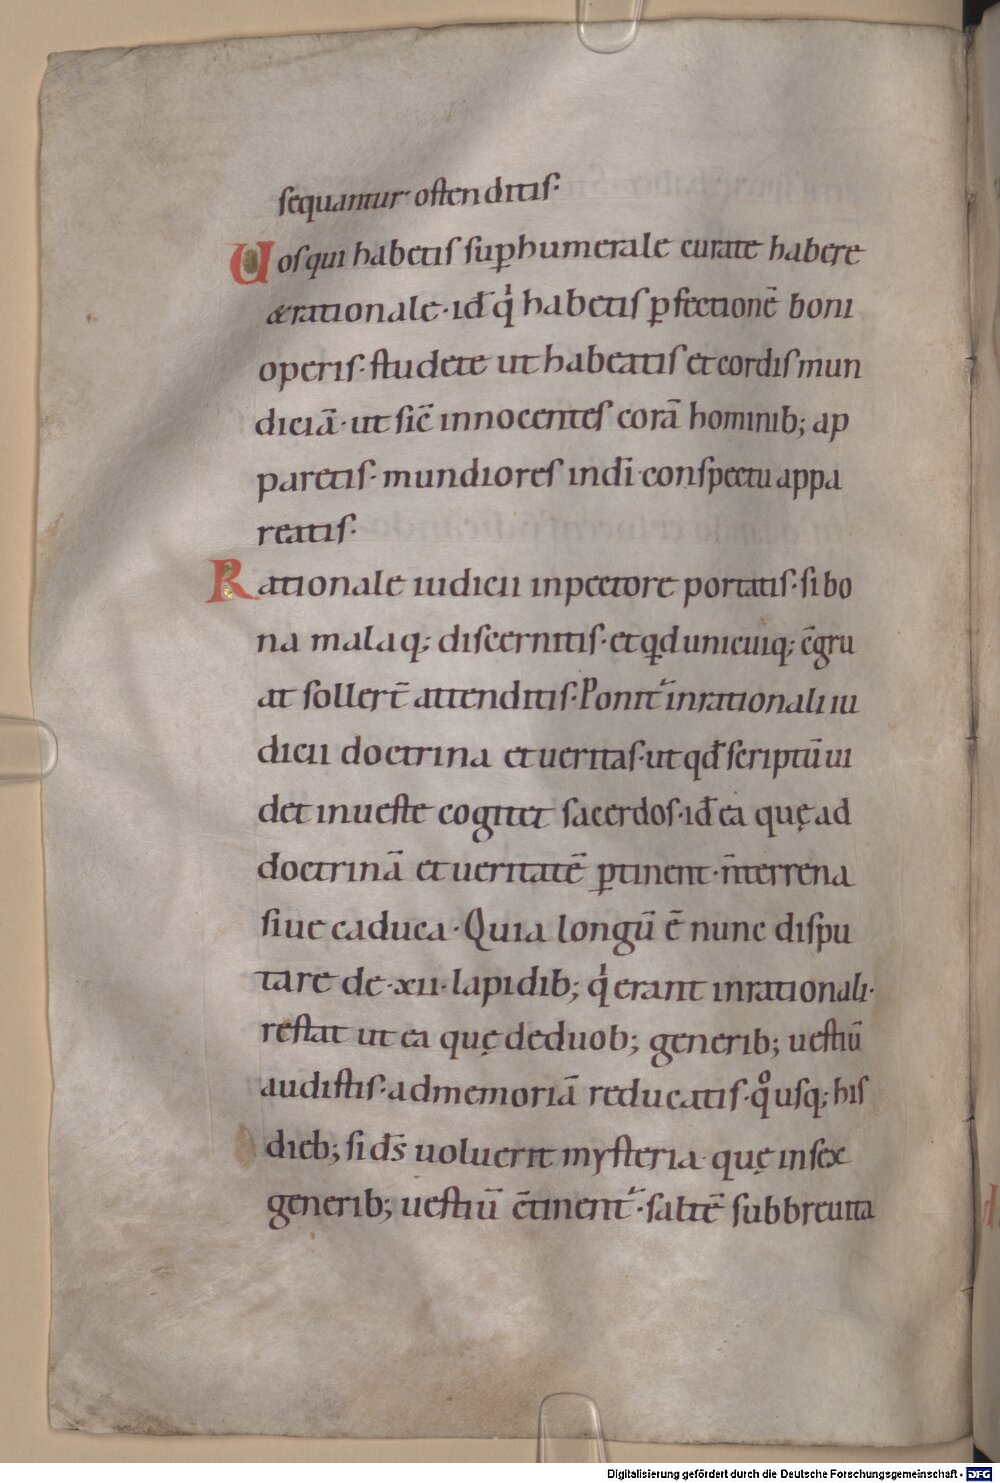 sequantur ostenditis·
Uos qui habetis sup̱humerale curate habere
& rationale· id͞ q̍ habetis ꝑfectionē boni
operis· studete ut habeatis et cordis mun
diciā· ut sic̄ innocentes corā hominib; ap
paretis· mundiores in dī conspectu appa
reatis·
Rationale iudicii in pectore portatis· si bo
na malaq; discernitis· et qd unicuiq; c̄gru
at sollert̄ attenditis· Ponit᷑ in rationali iu
dicii doctrina et ueritas· ut qđ scriptū ui
det in ueste cogitet sacerdos· id͞ ea quę ad
doctrinā et ueritatē ꝑtinent· n̄ terrena
siue caduca· Quia longū ē nunc dispu
tare de ·xii· lapidib; q̍ erant in rationali·
restat ut ea quę de duob; generib; uestiū
audistis· ad memoriā reducatis· qͦusq; his
dieb; si ds̄ uoluerit mysteria quę in sex
generib; uestiū c̄tinent᷑· saltē sub breuita
Digitalisierung gefördert durch die Deutsche Forschungsgemeinschaft - DFG